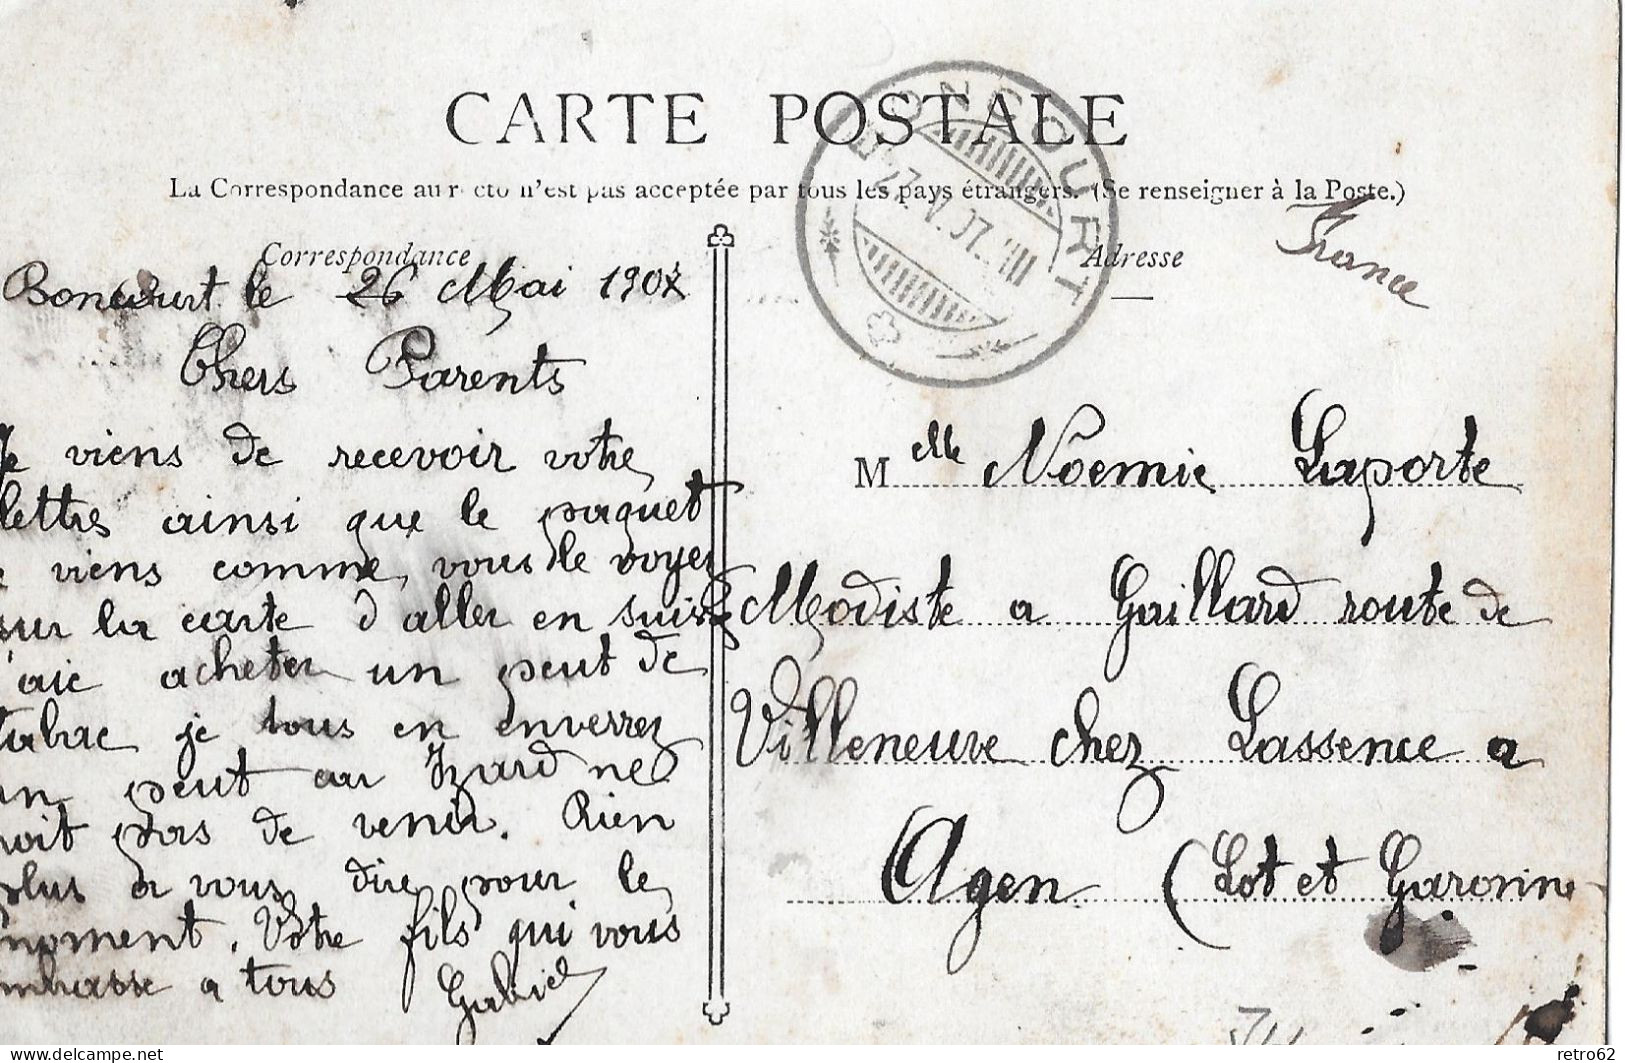 CARTE POSTALE
La Correspondance au recto n'est pas acceptée par tous les pays étrangers. (Se renseigner à la Poste.)
BONCOURT
27. V. 07. VIII
Correspondance
Adresse
France
Boncourt le 26 Mai 1907
Chers Parents
Je viens de recevoir votre
lettres ainsi que le paquet
viens comme vous le voyez
sur la carte d aller en suisse
'aie acheter un peut de
tabac je tous en enverrez
un peut car Izard ne
doit pas de venir. Rien
plus a vous dire pour le
moment. Votre fils qui vous
embrasse a tous Gabriel
Melle Noemie Laporte
Modiste a Gaillard route de
Villeneuve chez Lassence a
Agen (Lot et Garonne
retro62